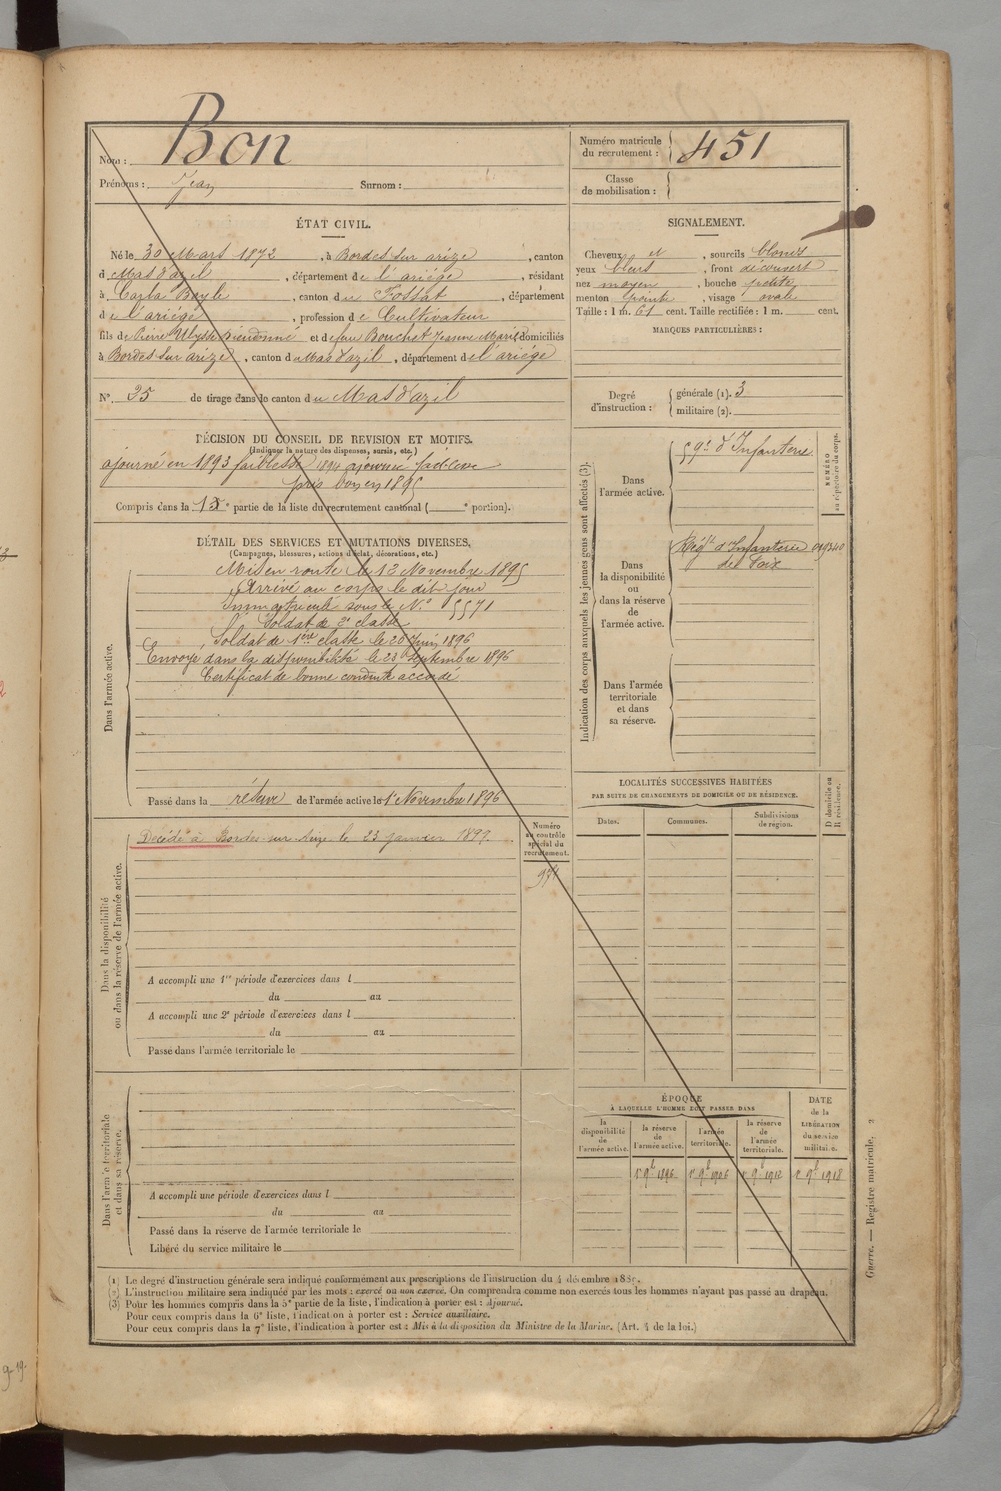 Nom : Bon
Prénoms : Jean Surnom :
Numéro matricule du recrutement : 451
Classe de mobilisation :
ÉTAT CIVIL.
Né le 30 Mars 1872, à Bordes sur arize, canton
d Mas d'azil, département de l'ariège, résidant
à Carla Bayle, canton du Fossat, département
de l'ariège, profession de Cultivateur
fils de Pierre Ulysse Dieudonné et de feue Bouchet Jeanne Marie domiciliés
à Bordes sur arize, canton du Mas d'azil, département de l'ariège
N° 25 de tirage dans le canton du Mas d'azil
SIGNALEMENT.
Cheveux et, sourcils blonds
yeux bleus, front découvert
nez moyen, bouche petite
menton pointu, visage ovale
Taille : 1 m. 61 cent. Taille rectifiée : 1 m. cent.
MARQUES PARTICULIÈRES :
Degré d'instruction :
générale (1). 3
militaire (2).
DÉCISION DU CONSEIL DE REVISION ET MOTIFS.
(Indiquer la nature des dispenses, sursis, etc.)
ajourné en 1893 faiblesse 1894 ajourné faiblesse
pris bon en 1895
Compris dans la e partie de la liste du recrutement cantonal ( e portion).
DÉTAIL DES SERVICES ET MUTATIONS DIVERSES.
(Campagnes, blessures, actions d'éclat, décorations, etc.)
Dans l'armée active.
Mis en route le 13 Novembre 1895
Arrivé au corps le dit jour
Immatriculé sous le N° 5571
Soldat de 2e classe
Soldat de 1ère classe le 20 Juin 1896
Envoyé dans la disponibilité le 23 Septembre 1896
Certificat de bonne conduite accordé
Passé dans la réserve de l'armée active le 1er Novembre 1896
Indication des corps auxquels les jeunes gens sont affectés (3).
NUMÉRO au répertoire du corps.
Dans l'armée active.
59e d'Infanterie
Dans la disponibilité ou dans la réserve de l'armée active.
Régt d'Infanterie
de Foix
Dans l'armée territoriale et dans sa réserve.
Dans la disponibilité ou dans la réserve de l'armée active.
Décédé à Bordes-sur-Arize le 23 janvier 1899.
Numéro au contrôle spécial du recrutement.
A accompli une 1re période d'exercices dans l
du au
A accompli une 2e période d'exercices dans l
du au
Passé dans l'armée territoriale le
LOCALITÉS SUCCESSIVES HABITÉES
PAR SUITE DE CHANGEMENTS DE DOMICILE OU DE RÉSIDENCE.
D domicile ou R résidence.
Dates. Communes. Subdivisions de région.
Dans l'armée territoriale et dans sa réserve.
A accompli une période d'exercices dans l
du au
Passé dans la réserve de l'armée territoriale le
Libéré du service militaire le
ÉPOQUE
À LAQUELLE L'HOMME DOIT PASSER DANS
la disponibilité de l'armée active.
la réserve de l'armée active.
l'armée territoriale.
la réserve de l'armée territoriale.
DATE de la LIBÉRATION du service militaire.
1er 9bre 1896 1er 9bre 1906 1er 9bre 1912 1er 9bre 1918
(1) Le degré d'instruction générale sera indiqué conformément aux prescriptions de l'instruction du 4 décembre 1889.
(2) L'instruction militaire sera indiquée par les mots : exercé ou non exercé. On comprendra comme non exercés tous les hommes n'ayant pas passé au drapeau.
(3) Pour les hommes compris dans la 5e partie de la liste, l'indication à porter est : Ajourné.
Pour ceux compris dans la 6e liste, l'indication à porter est : Service auxiliaire.
Pour ceux compris dans la 7e liste, l'indication à porter est : Mis à la disposition du Ministre de la Marine. (Art. 4 de la loi.)
Guerre. — Registre matricule. 2